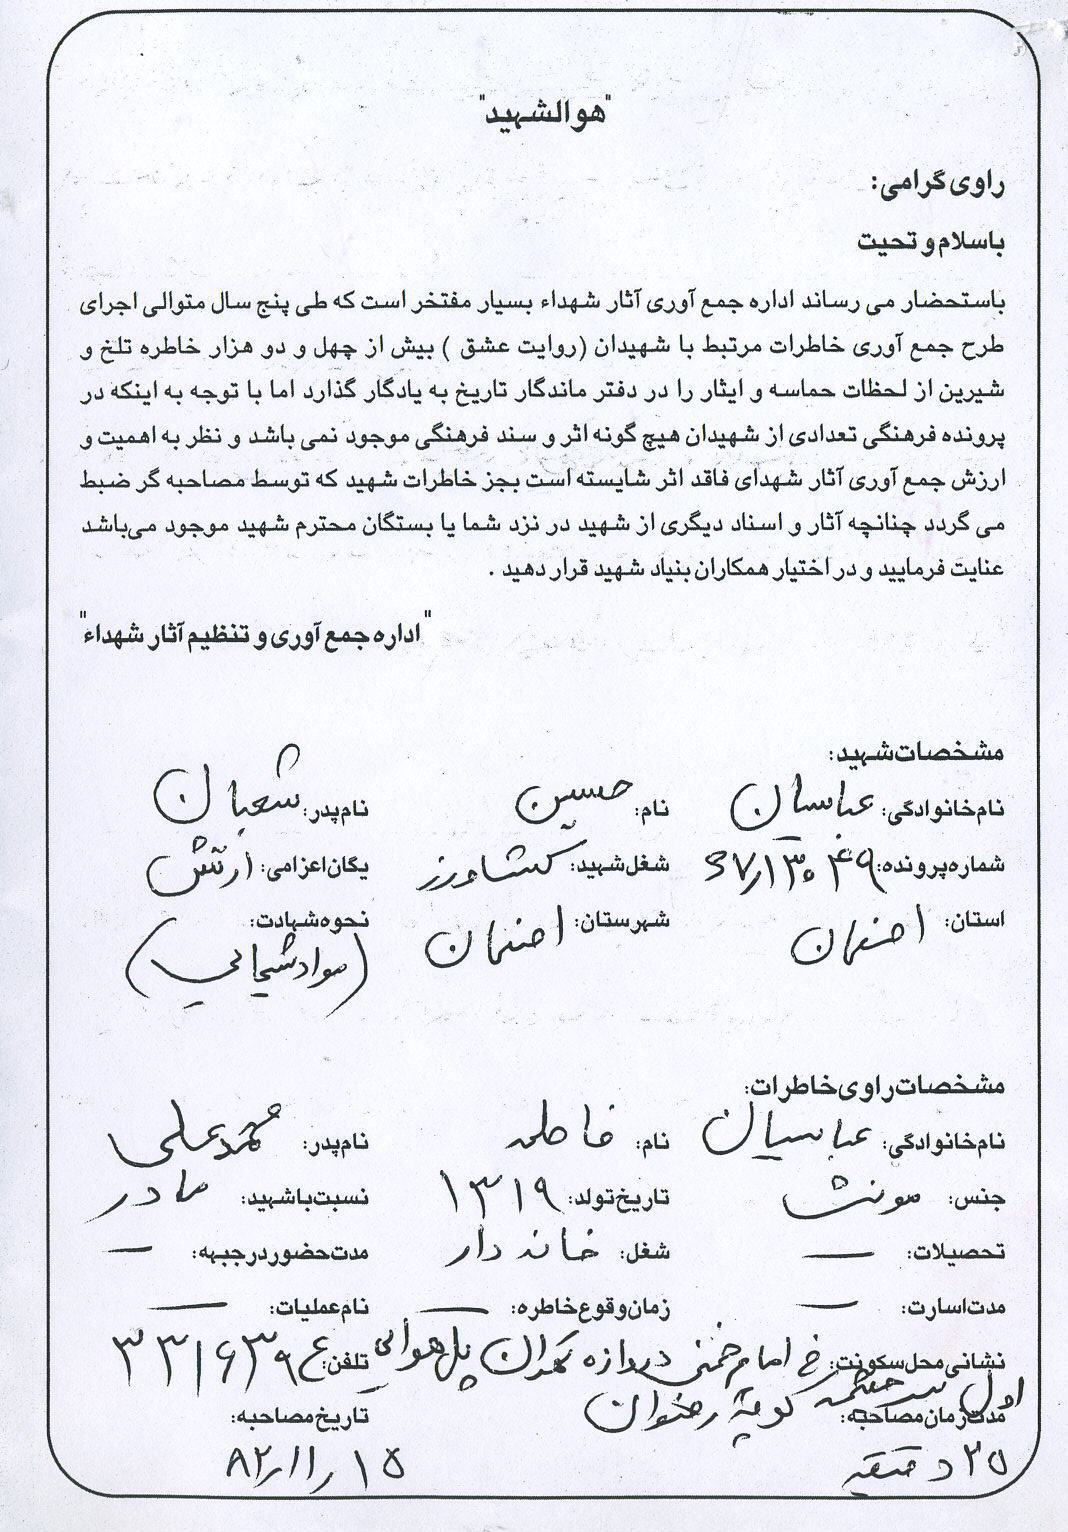 "هوالشهید"
راوی گرامی:
باسلام و تحیت
باستحضار می رساند اداره جمع آوری آثار شهداء بسیار مفتخر است که طی پنج سال متوالی اجرای
طرح جمع آوری خاطرات مرتبط با شهیدان (روایت عشق ) بیش از چهل و دو هزار خاطره تلخ و
شیرین از لحظات حماسه و ایثار را در دفتر ماندگار تاریخ به یادگار گذارد اما با توجه به اینکه در
پرونده فرهنگی تعدادی از شهیدان هیچ گونه اثر و سند فرهنگی موجود نمی باشد و نظر به اهمیت و
ارزش جمع آوری آثار شهدای فاقد اثر شایسته است بجز خاطرات شهید که توسط مصاحبه گر ضبط
می گردد چنانچه آثار و اسناد دیگری از شهید در نزد شما یا بستگان محترم شهید موجود می‌باشد
عنایت فرمایید و در اختیار همکاران بنیاد شهید قرار دهید .
"اداره جمع آوری و تنظیم آثار شهداء"
مشخصات شهید:
نام خانوادگی: عباسیان نام: حسین نام پدر: شعبان
شماره پرونده: شغل شهید: کشاورز یگان اعزامی: ارتش
استان: اصفهان شهرستان: اصفهان نحوه شهادت:
(مواد شیمیایی)
مشخصات راوی خاطرات:
نام خانوادگی: عباسیان نام: فاطمه نام پدر: محمدعلی
جنس: مونث تاریخ تولد: ۱۳۱۹ نسبت با شهید: مادر
تحصیلات: — شغل: خانه دار مدت حضور در جبهه: —
مدت اسارت: — زمان و قوع خاطره: — نام عملیات: —
نشانی محل سکونت: خ امام خمینی دروازه تهران پل هوایی تلفن: ۳۳۱۶۳۹۴
اول کوچه رضوان
مدت زمان مصاحبه: تاریخ مصاحبه:
۲۵ دقیقه ۱۵/۱۱/۸۲